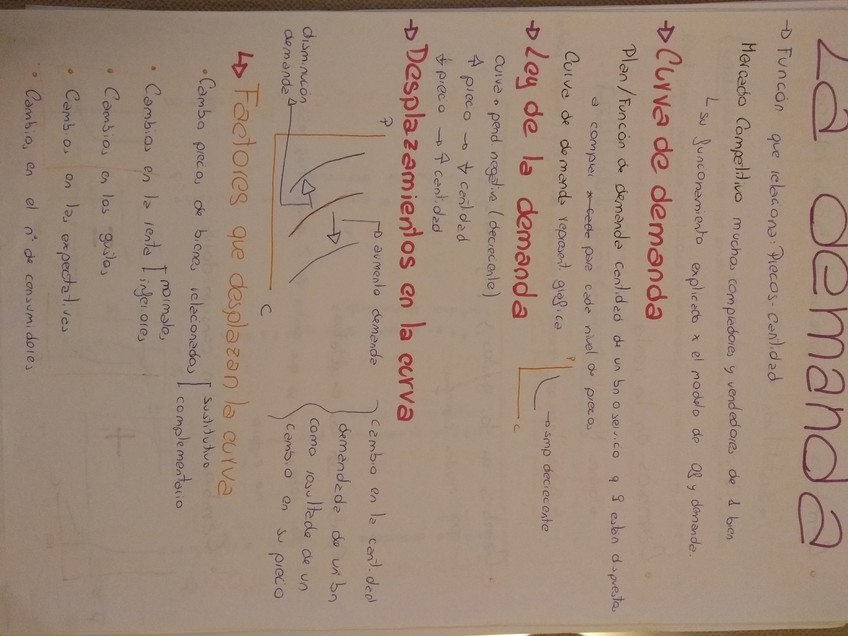 La demanda
→ Función que relaciona: Precios-Cantidad
Mercado Competitivo muchos compradores y vendedores de 1 bien
↳ su funcionamiento explicado x el modelo de Of y demanda.
→ Curva de demanda
Plan/Función de demanda cantidad de un bn o servicio q están dispuestos
a comprar para cada nivel de precios
Curva de demanda represent gráfica
P
→ smp decreciente
C
→ Ley de la demanda
curva pend negativa (decreciente)
↑ precio → ↓ cantidad
↓ precio → ↑ cantidad
→ Desplazamientos en la curva
P
→ aumento demanda
disminución
demanda
C
cambio en la cantidad
demandada de un bn
como resultado de un
cambio en su precio
↳ Factores que desplazan la curva
• Cambio precios de bienes relacionados [ sustitutivo
complementario
• Cambios en la renta [ normales
inferiores
• Cambios en los gustos
• Cambios en las expectativas
• Cambios en el nº de consumidores